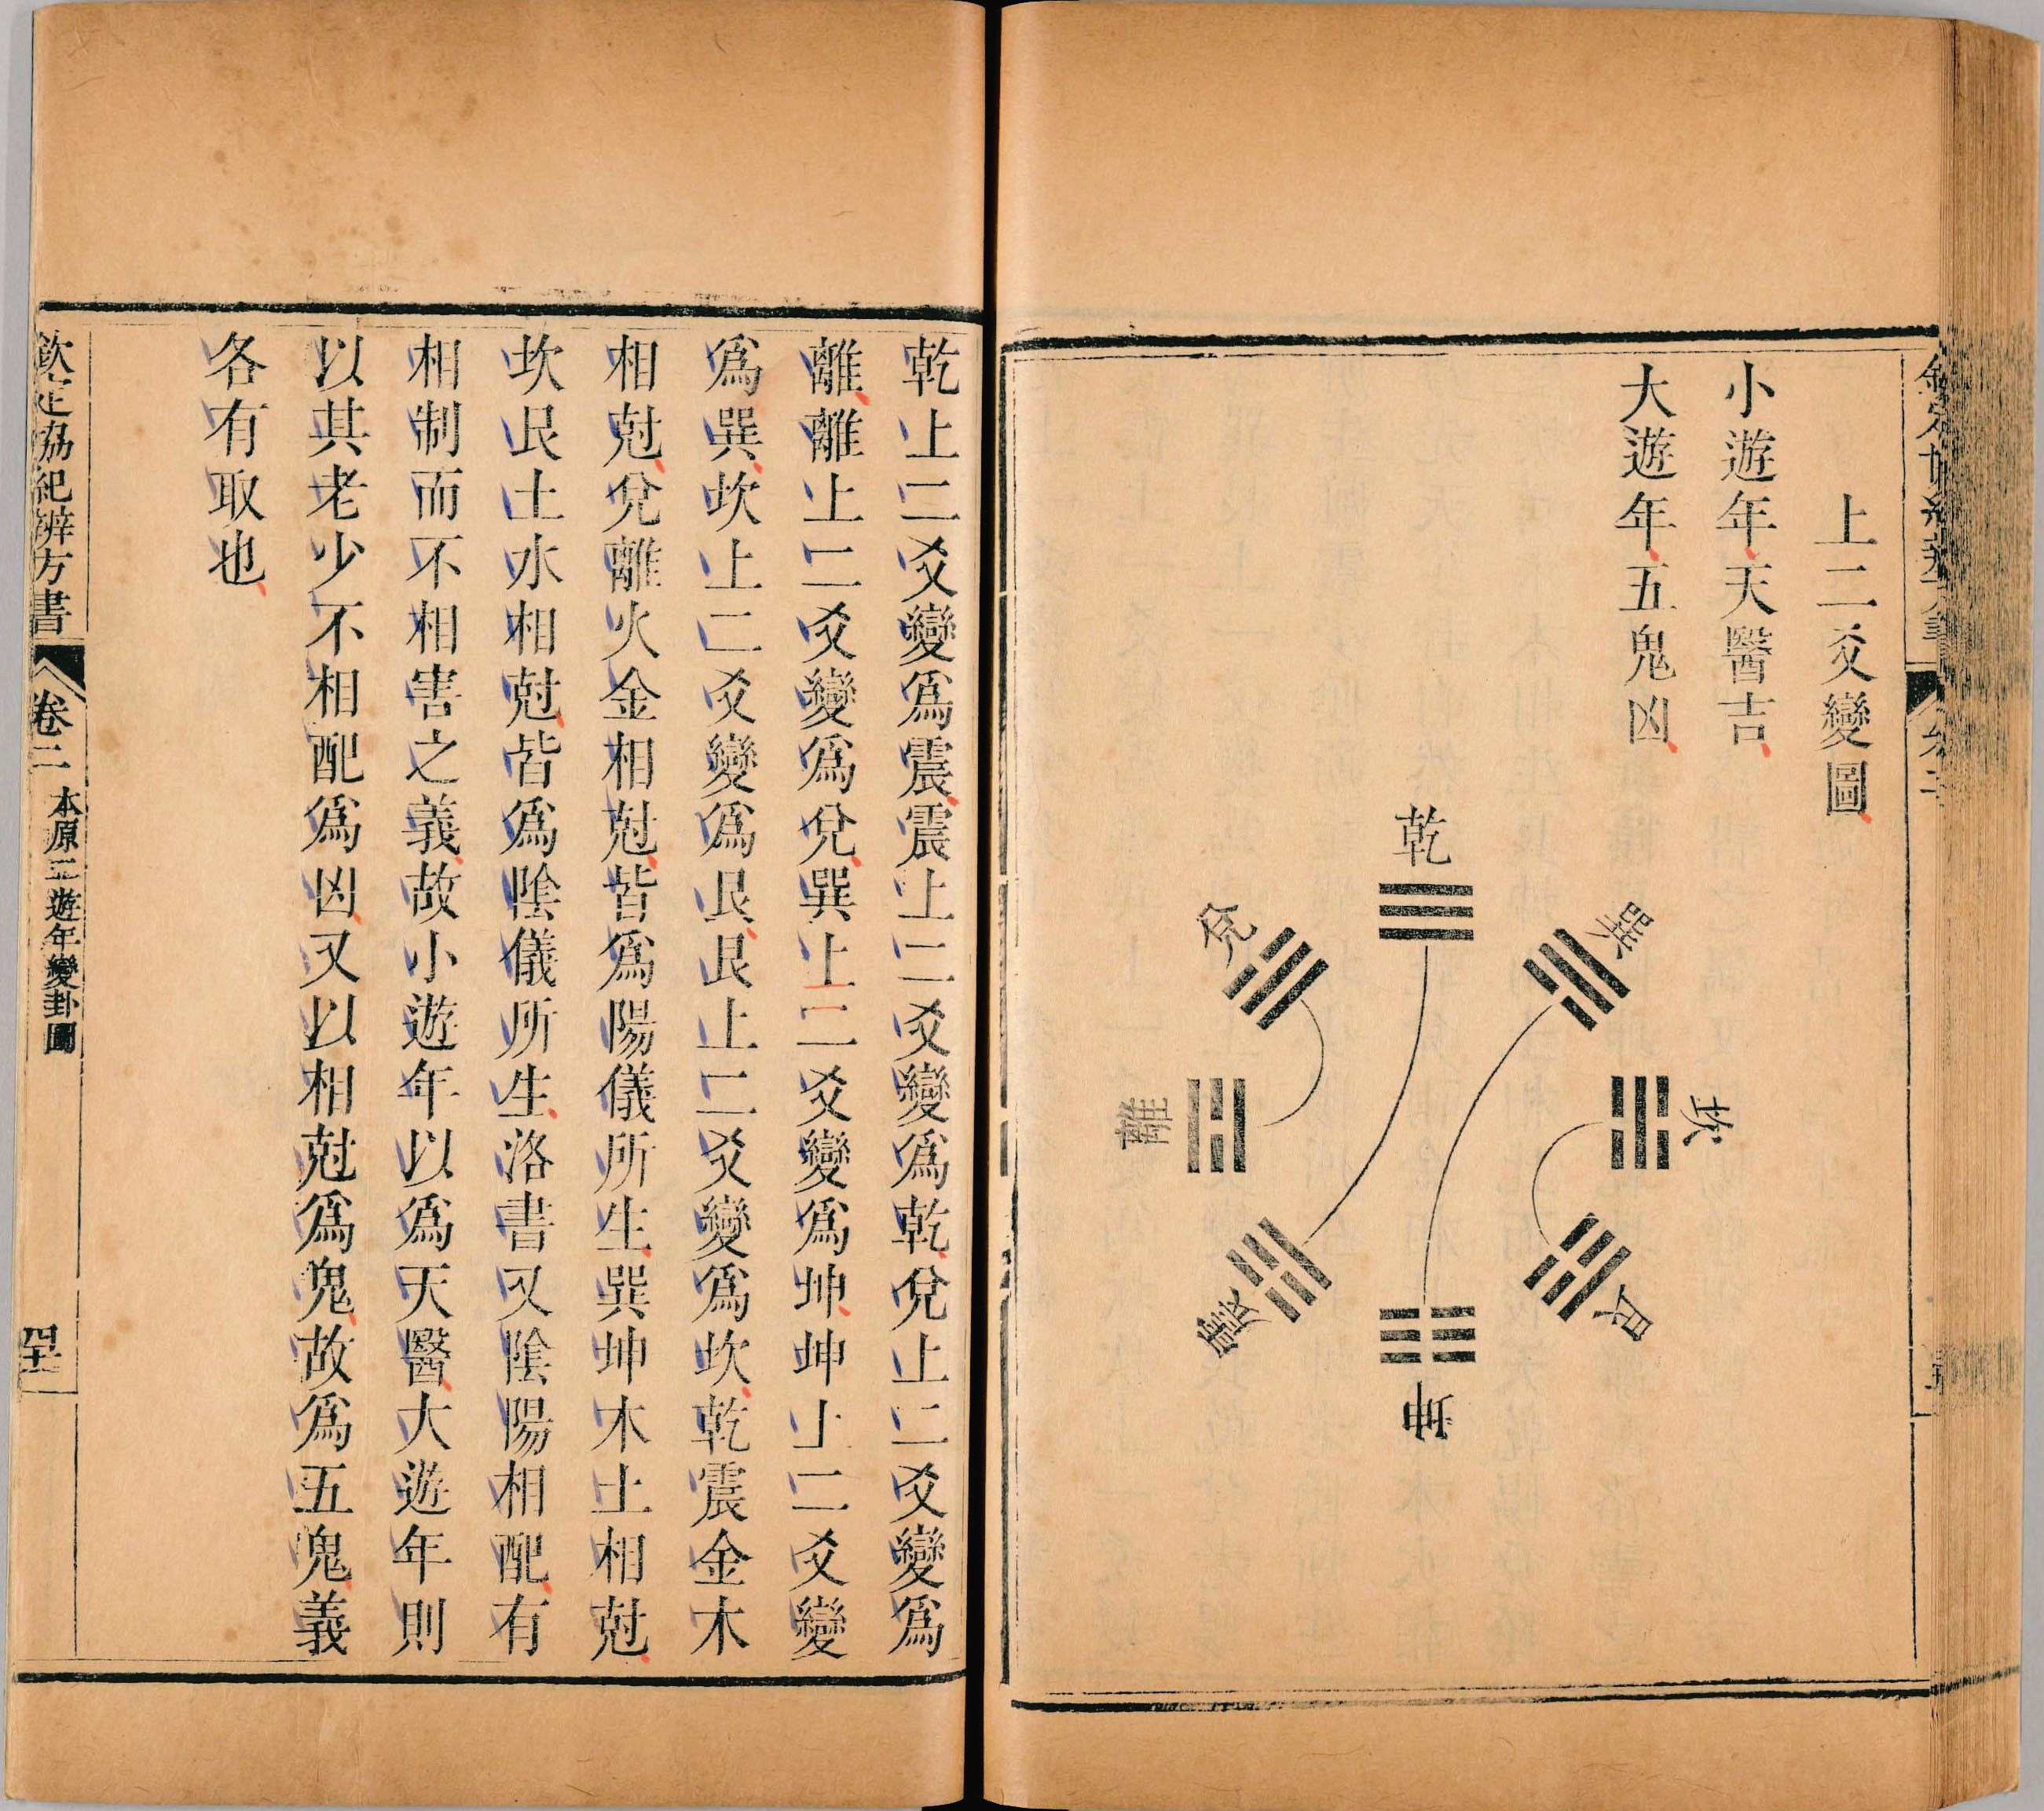 上二爻變圖
小遊年天醫吉
大遊年五鬼凶
乾
兌
巽
離
坎
震
艮
坤
乾上二爻變爲震震上二爻變爲乾兌上二爻變爲
離離上二爻變爲兌巽上二爻變爲坤坤上二爻變
爲巽坎上二爻變爲艮艮上二爻變爲坎乾震金木
相尅兌離火金相尅皆爲陽儀所生巽坤木土相尅
坎艮土水相尅皆爲陰儀所生洛書又陰陽相配有
相制而不相害之義故小遊年以爲天醫大遊年則
以其老少不相配爲凶又以相尅爲鬼故爲五鬼義
各有取也
欽定協紀辨方書
卷二
本原二 遊年變卦圖